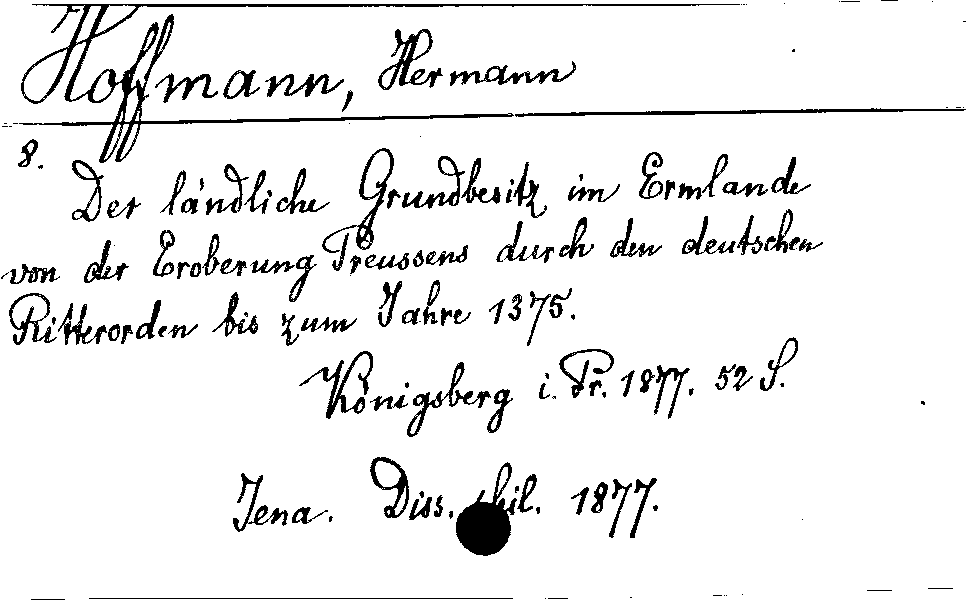 Hoffmann, Hermann
8.
Der ländliche Grundbesitz im Ermlande
von der Eroberung Preussens durch den deutschen
Ritterorden bis zum Jahre 1375.
Königsberg i. Pr. 1877. 52 S.
Jena. Diss. phil. 1877.